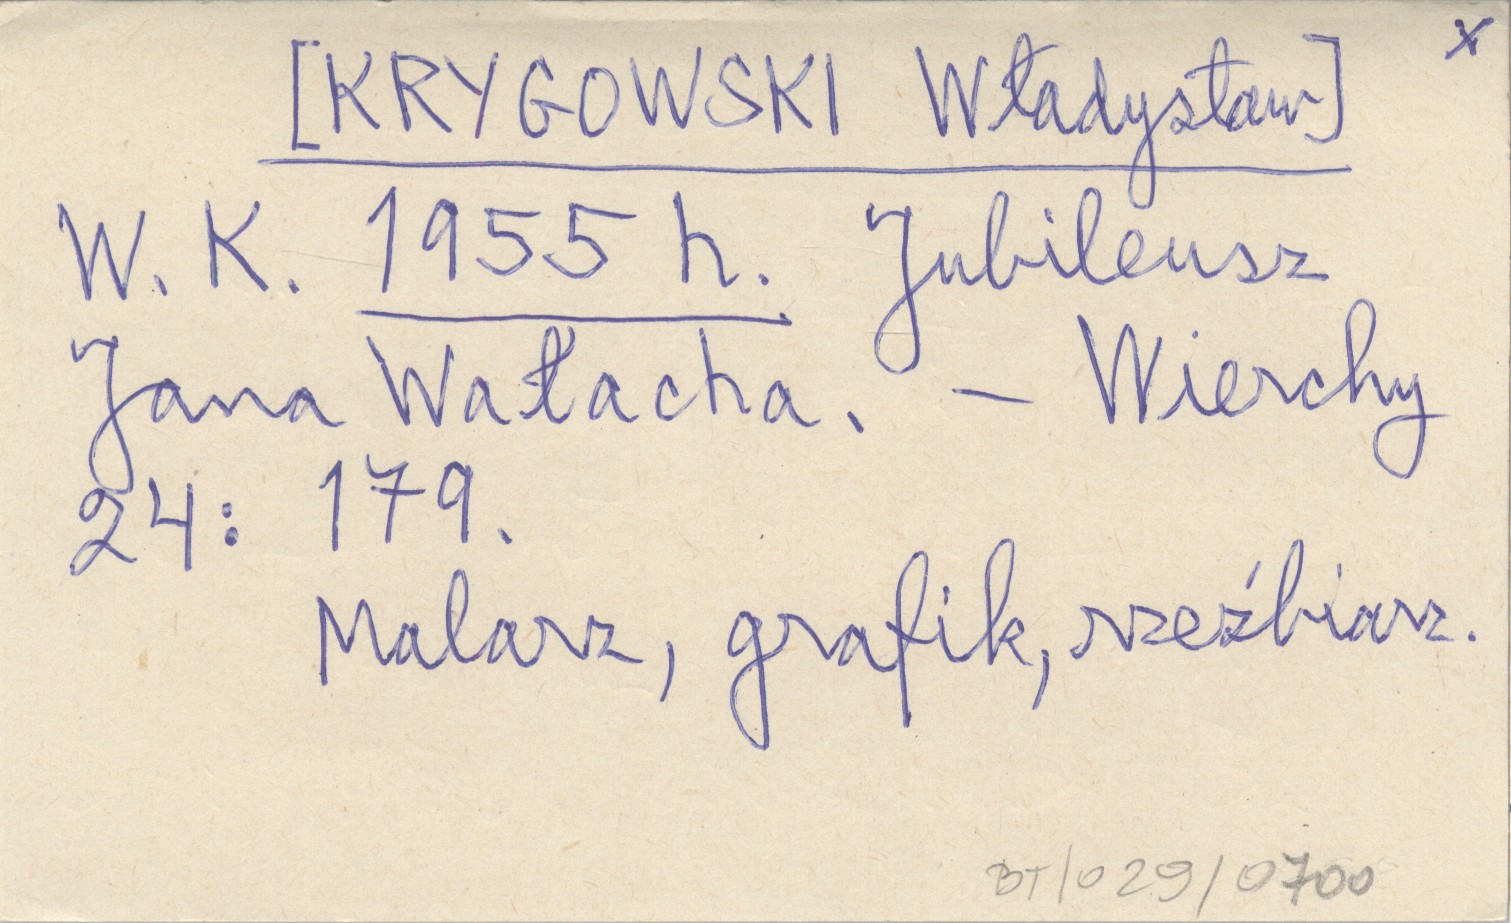 x
[KRYGOWSKI Władysław]
W. K. 1955 h. Jubileusz
Jana Wałacha. – Wierchy
24: 179.
Malarz, grafik, rzeźbiarz.
BT/029/0700